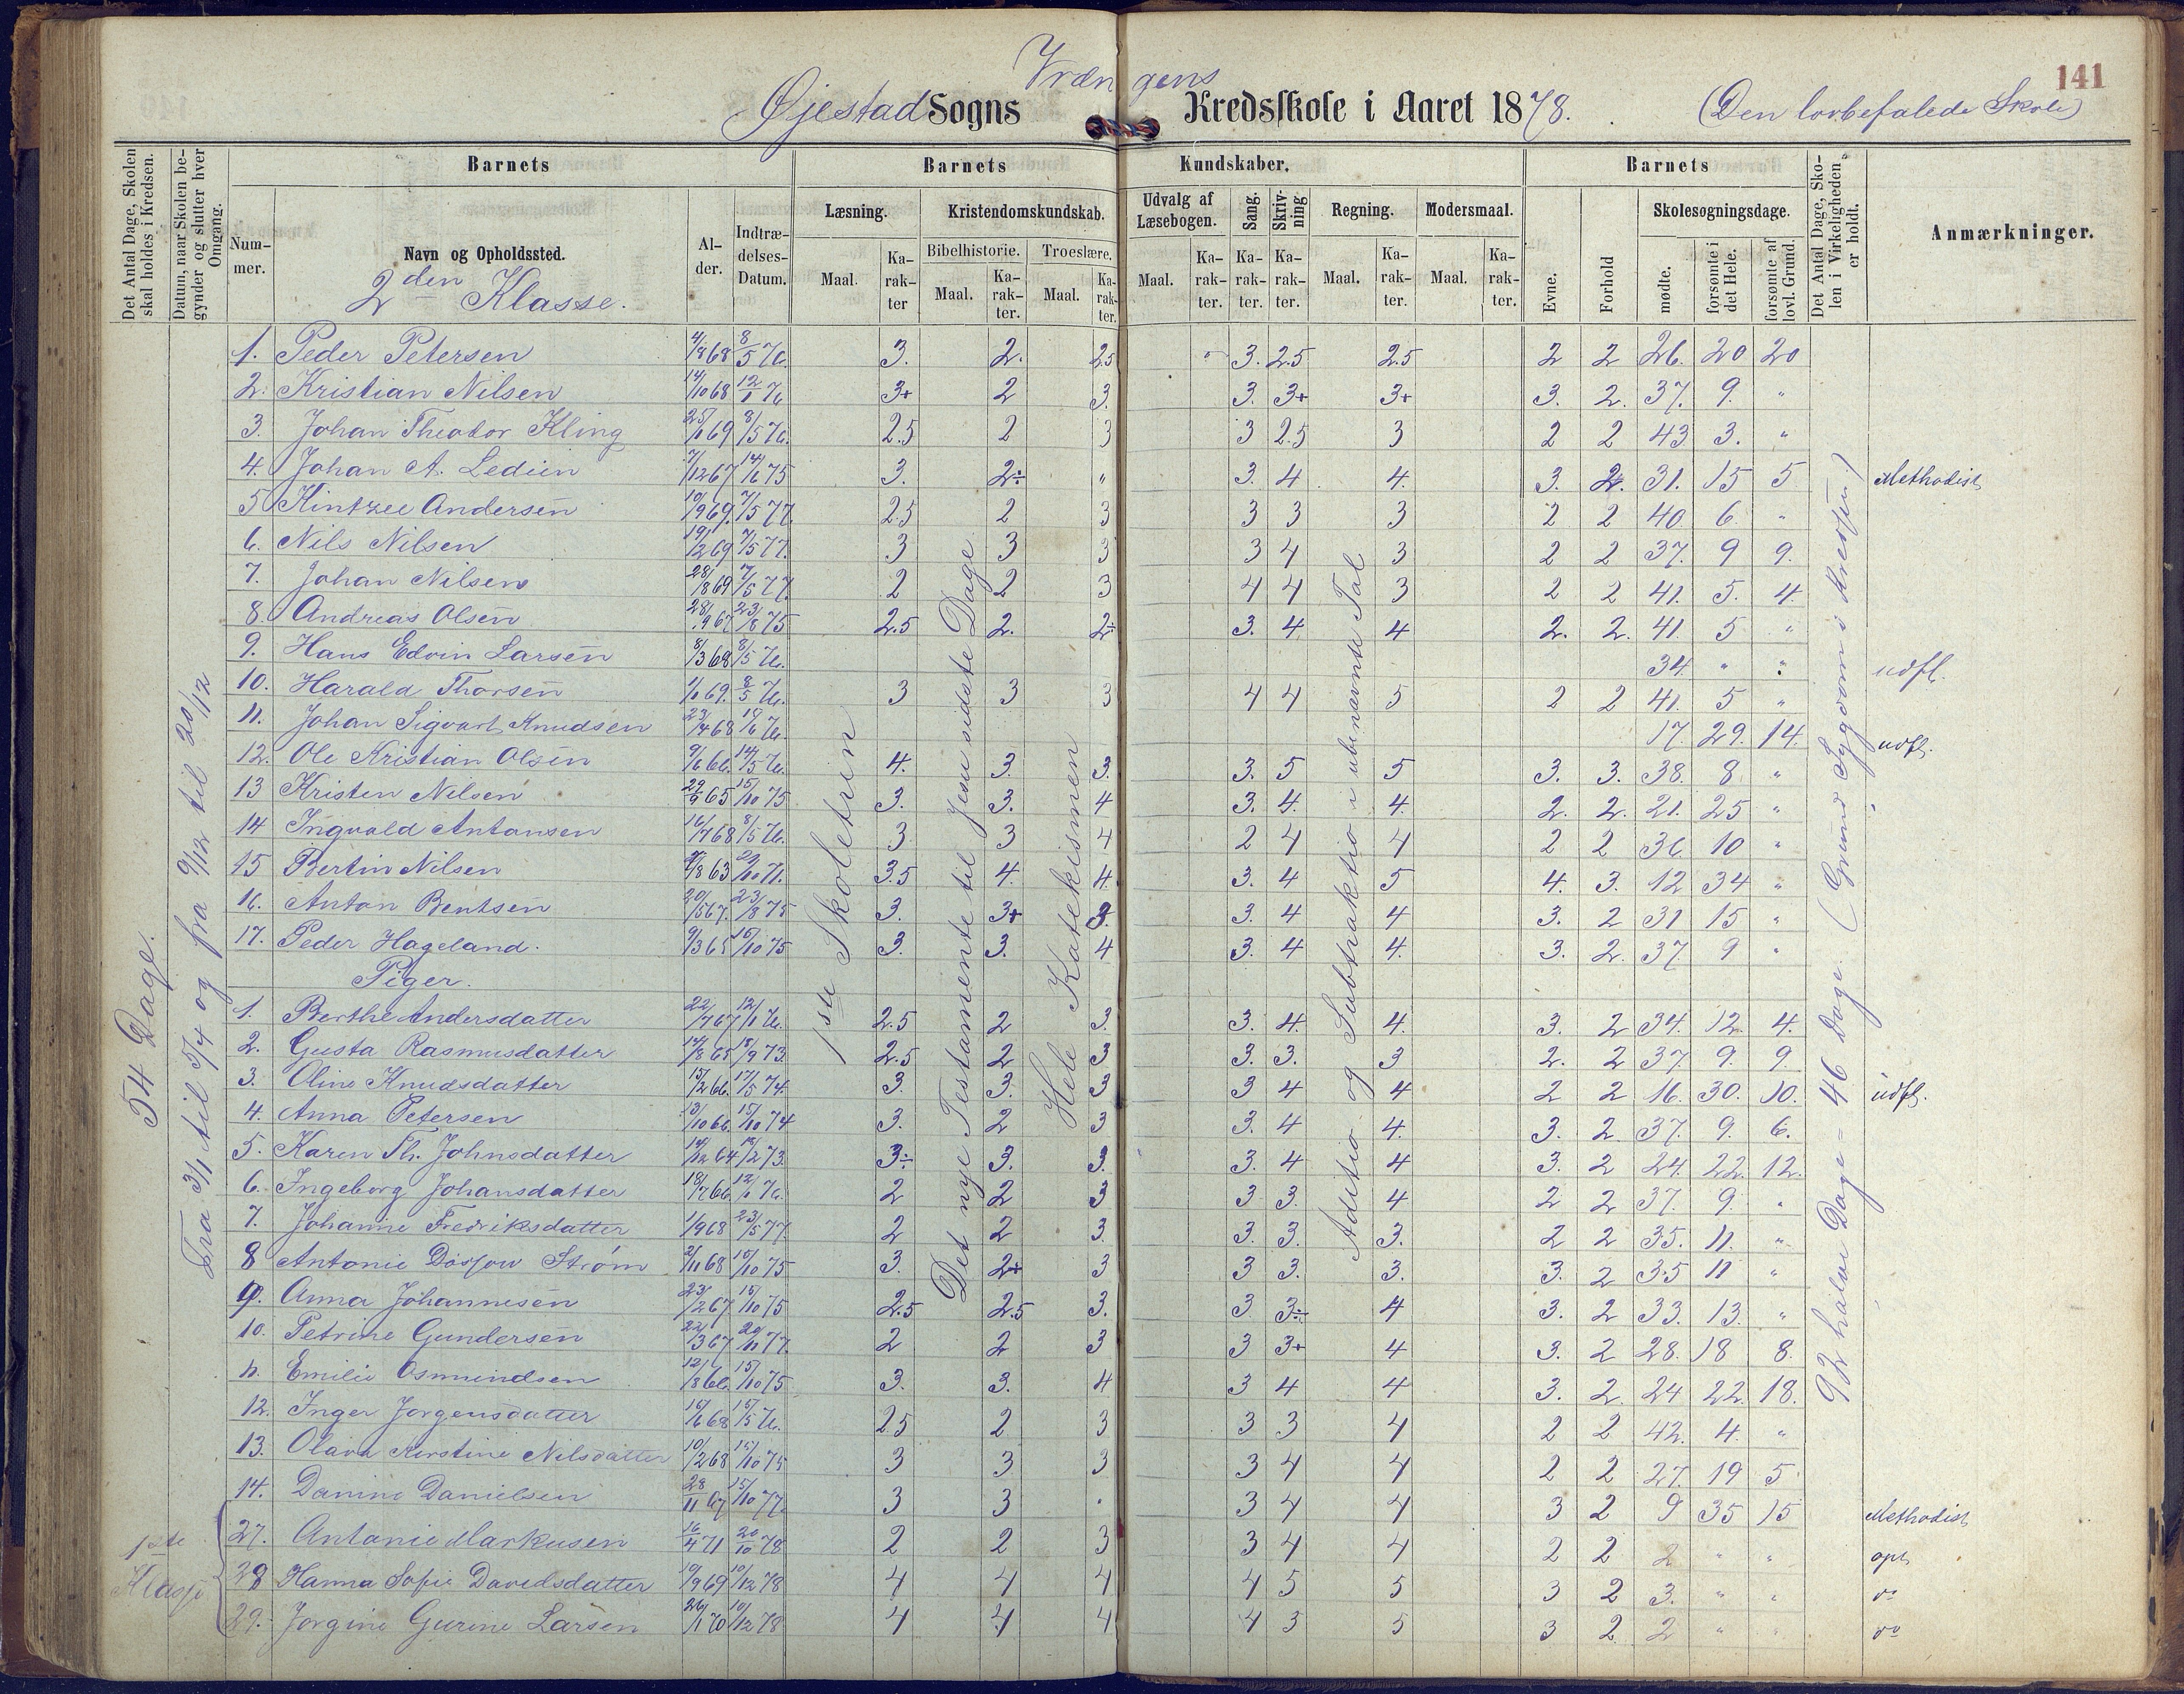 141
Vrængens
Øjestad Sogns Kredsskole i Aaret 1878. (Den lovbefalede Skole)
Det Antal Dage, Skolen skal holdes i Kredsen.
Datum, naar Skolen begynder og slutter hver Omgang.
Barnets Barnets Kundskaber. Barnets
Det Antal Dage, Skolen i Virkeligheden er holdt.
Anmærkninger.
Nummer. Navn og Opholdssted. Alder. Indtrædelses-Datum.
Læsning. Kristendomskundskab. Udvalg af Læsebogen. Sang. Skrivning Regning. Modersmaal. Evne. Forhold Skolesøgningsdage.
Bibelhistorie. Troeslære.
Maal. Karakter Maal. Karakter. Maal. Karakter. Maal. Karakter. Karakter. Karakter. Maal. Karakter. Maal. Karakter. mødte. forsømte i det Hele. forsømte af lovl. Grund.
2den Klasse.
54 Dage.
Fra 3/1 til 5/4 og fra 9/12 til 20/12
1ste Skoletrin
Det nye Testamente til Jesu sidste Dage
Hele Katekismen
Aditio og Subtraktio i ubenævnte Tal
92 halve Dage = 46 Dage. (Grund Sygdom i Kredsen)
1. Peder Petersen 4/8 68 8/5 76. 3. 2. 2.5 3. 2.5 2.5 2 2 26. 20 20
2. Kristian Nilsen 14/10 68 12/1 76 3+ 2 3. 3. 3+ 3+ 3. 2. 37. 9. "
3. Johan Theodor Kling 25/1 69 8/5 76. 2.5 2 3 3 2.5 3 2 2 43 3. "
4. Johan A. Lediin 7/12 67 14/6 75 3. 2÷ " 3. 4 4. 3. 2. 31. 15 5 Methodist
5 Kintzee Andersen 10/9 69. 7/5 77. 2.5 2 3 3 3 3 2 2 40. 6. "
6. Nils Nilsen 19/2 69 7/5 77. 3 3 3 3 4 3 2 2 37. 9 9.
7. Johan Nilsen 28/8 69 7/5 77. 2 2 3 4 4 3 2 2 41. 5. 4.
8. Andreas Olsen 28/9 67 23/8 75 2.5 2. 2÷ 3. 4. 4 2. 2. 41 5 "
9. Hans Edvin Larsen 8/3 68 8/5 76. 34. " " udfl.
10. Harald Thorsen 1/1 69. 8/5 76. 3 3 3 4 4 5 2 2 41. 5 "
11. Johan Sigvart Knudsen 23/4 68 19/6 76. 17. 29. 14. udfl.
12. Ole Kristian Olsen 9/6 66. 14/5 76. 4. 3. 3. 3. 5 5 3. 3. 38. 8 "
13 Kristen Nilsen 29/9 65 15/10 75 3. 3. 4 3. 4. 4. 2. 2. 21. 25 "
14 Ingvald Antonsen 16/7 68 8/5 76. 3 3 4 2 4 4 2 2 36. 10 "
15 Bertin Nilsen 7/8 63 29/10 71. 3.5 4. 4. 3. 4 5 4. 3. 12 34 "
16. Anton Bentsen 20/5 67. 23/8 75 3. 3+ 3. 3. 4 4 3. 2 31 15 "
17. Peder Hageland. 9/3 65 15/10 75 3. 3. 4 3. 4 4. 3. 2. 37. 9 "
Piger.
1. Berthe Andersdatter 22/7 67 12/1 76. 2.5 2 3. 3. 4. 4. 3. 2 34. 12. 4.
2. Gusta Rasmusdatter 14/8 65 18/9 73 2.5 2 3 3. 3. 3 2. 2 37. 9. 9.
3. Oline Knudsdatter 15/2 66. 17/5 74. 3. 3. 3 3 4 4 2 2 16. 30. 10. udfl.
4. Anna Petersen 13/10 66. 15/10 74 3. 2 3 3. 4 4. 3. 2 37. 9. 6.
5. Karen Th. Johnsdatter 14/12 64 18/2 73. 3÷ 3. 3. 3. 4 4 3. 2 24. 22. 12.
6. Ingeborg Johansdatter 18/7 66 12/1 76. 2 2 3 3 3. 4 2 2 37. 9. "
7. Johanne Fredriksdatter 1/9 68 23/5 77. 2 2 3. 3. 3. 3. 2 2 35. 11. "
8 Antonie Strøm 2/11 68 15/10 75 3. 2+ 3 3 3. 3. 3. 2 35 11 "
9. Anna Johannesen 23/2 67 15/10 75 2.5 2.5 3. 3 3÷ 4 3. 2 33. 13. "
10. Petrine Gundersen 22/3 67 20/10 77. 2 2 3 3 3+ 4 3. 2 28. 18 8.
11. Emilie Osmundsen 12/8 66. 15/10 75 3. 3. 4 3 4 4 3. 2. 24 22. 18.
12. Inger Jørgensdatter 15/6 68 15/5 76. 2.5 2 3 3 3 4 2 2 42. 4. "
13. Olava Kirstine Nilsdatter 10/2 68 15/10 75 3 3 3 3 4 4 2 2 27. 19 5
14. Danine Danielsen 28/11 67 15/10 77. 3 3 . 3 4 4 3 2 9 35 15 Methodist
1ste Klasse
27. Antanie Markusen 16/4 71 20/10 78 2 2 3 3 4 4 2 2 2 " " opt.
28 Hanna Sofie Davidsdatter 19/9 69 10/12 78 4 4 4 4 5 5 3 2 3. " " do
29. Jørgine Gurine Larsen 26/1 70 10/12 78 4 4 4 4 3 5 3 2 2 " " do